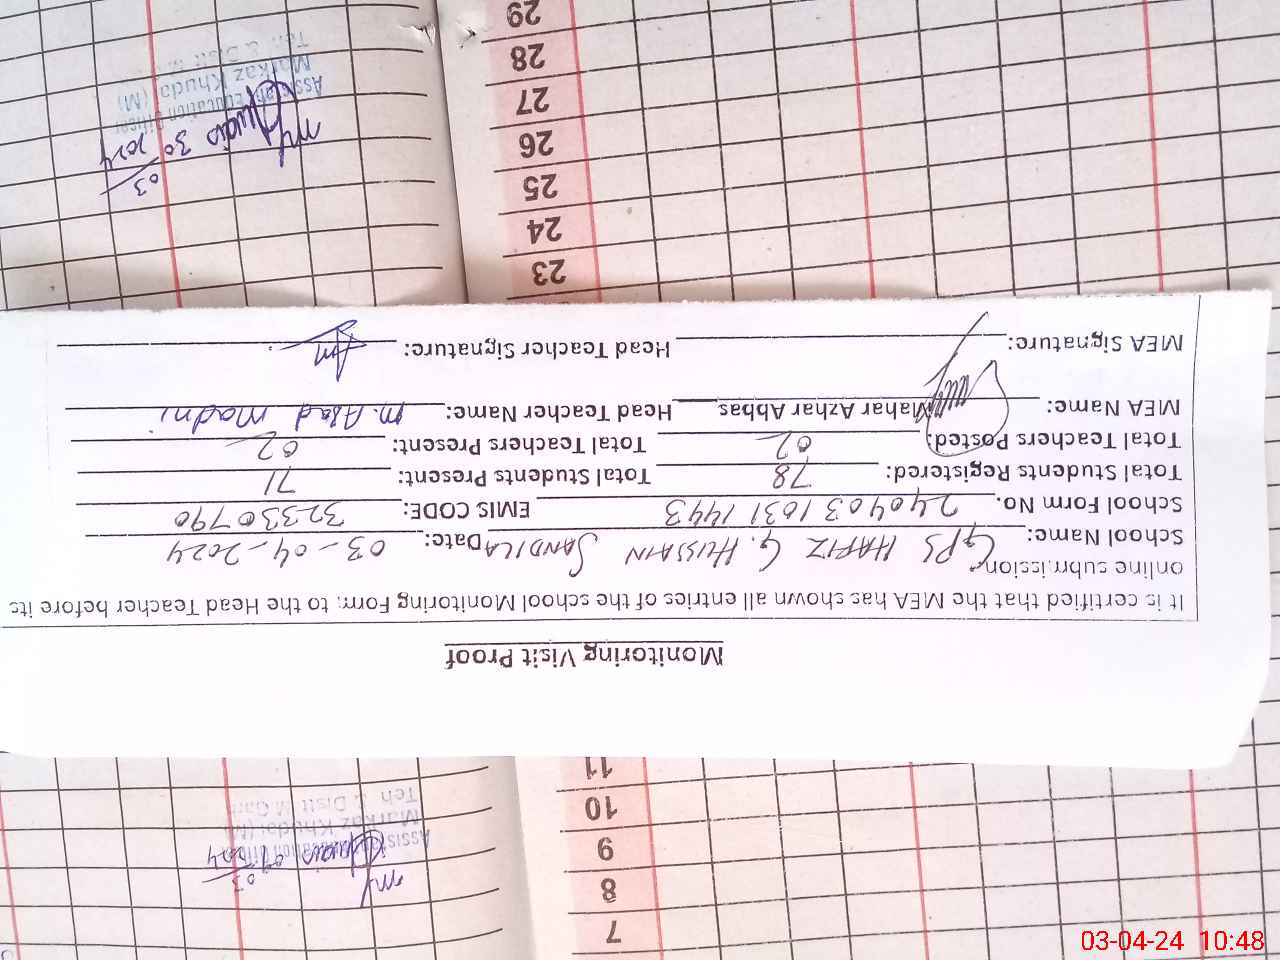 Monitoring Visit Proof
It is certified that the MEA has shown all entries of the school Monitoring Form, to the Head Teacher before its
online submission.
School Name: GPS HAFIZ G. HUSSAIN SANDILA Date: 03-04-2024
School Form No. 2404031031443 EMIS CODE: 32330790
Total Students Registered: 78 Total Students Present: 71
Total Teachers Posted: 02 Total Teachers Present: 02
MEA Name: Mahar Azhar Abbas Head Teacher Name: M. Asad Madni
MEA Signature: Head Teacher Signature:
7
8
9
10
11
23
24
25
26
27
28
29
Assistant Education Officer
Markaz Khudai (M)
Teh & Distt M.Garh
Assistant Education Officer
Markaz Khudai (M)
Teh & Distt
30
03
2024
03-04-24 10:48